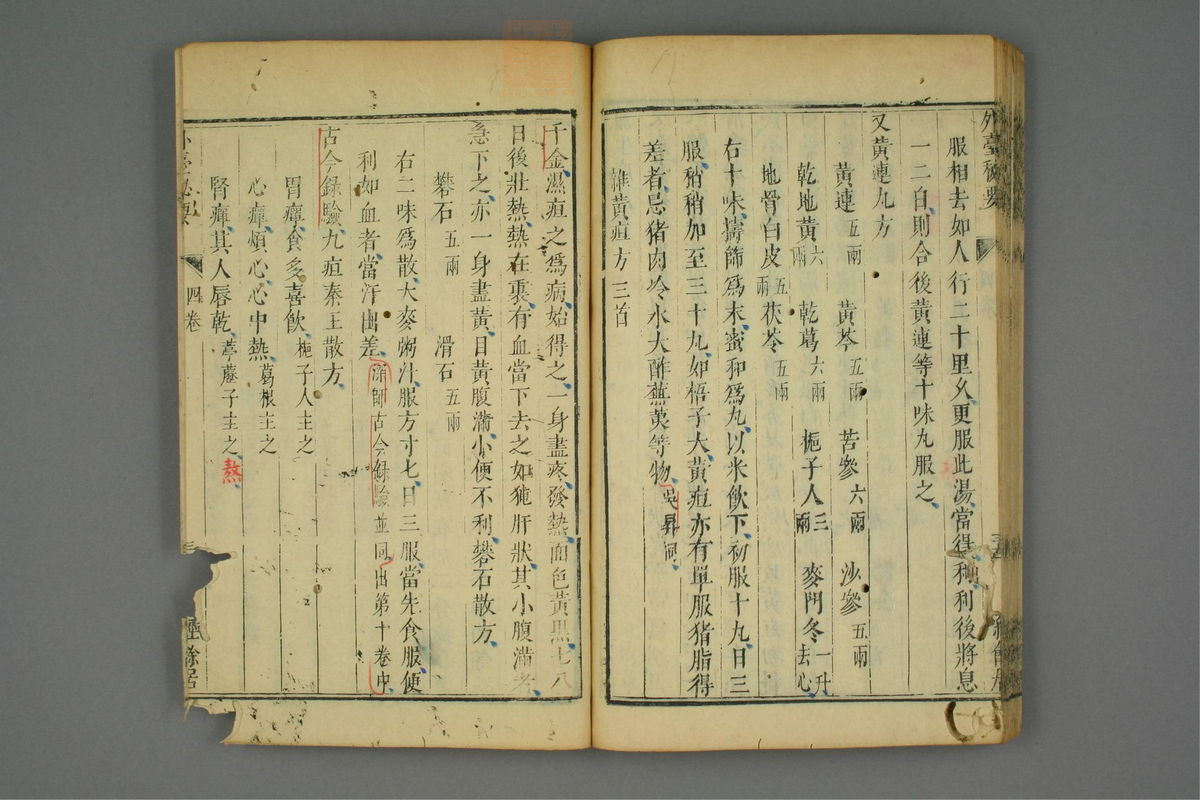 外臺秘要
服相去如人行二十里久更服此湯當得稍利後將息
一二日則合後黃連等十味丸服之
又黃連丸方
黃連五兩 黃芩五兩 苦參六兩 沙參五兩
乾地黃六兩 乾葛六兩 梔子人三兩 麥門冬一升去心
地骨白皮五兩 茯苓五兩
右十味擣篩爲末蜜和爲丸以米飲下初服十丸日三
服稍稍加至三十丸如梧子大黃疸亦有單服猪脂得
差者忌猪肉冷水大酢蕪荑等物吳昇同
雜黃疸方三首
千金濕疸之爲病始得之一身盡疼發熱面色黃黑七八
日後壯熱熱在裏有血當下去之如㹠肝狀其小腹滿者
急下之亦一身盡黃目黃腹滿小便不利礬石散方
礬石五兩 滑石五兩
右二味爲散大麥粥汁服方寸七日三服當先食服便
利如血者當汗出差深師古今錄驗並同出第十卷中
古今錄驗九疸秦王散方
胃癉食多喜飲梔子人主之
心癉煩心心中熱葛根主之
腎癉其人唇乾葶藶子主之熬
四卷
經餘居